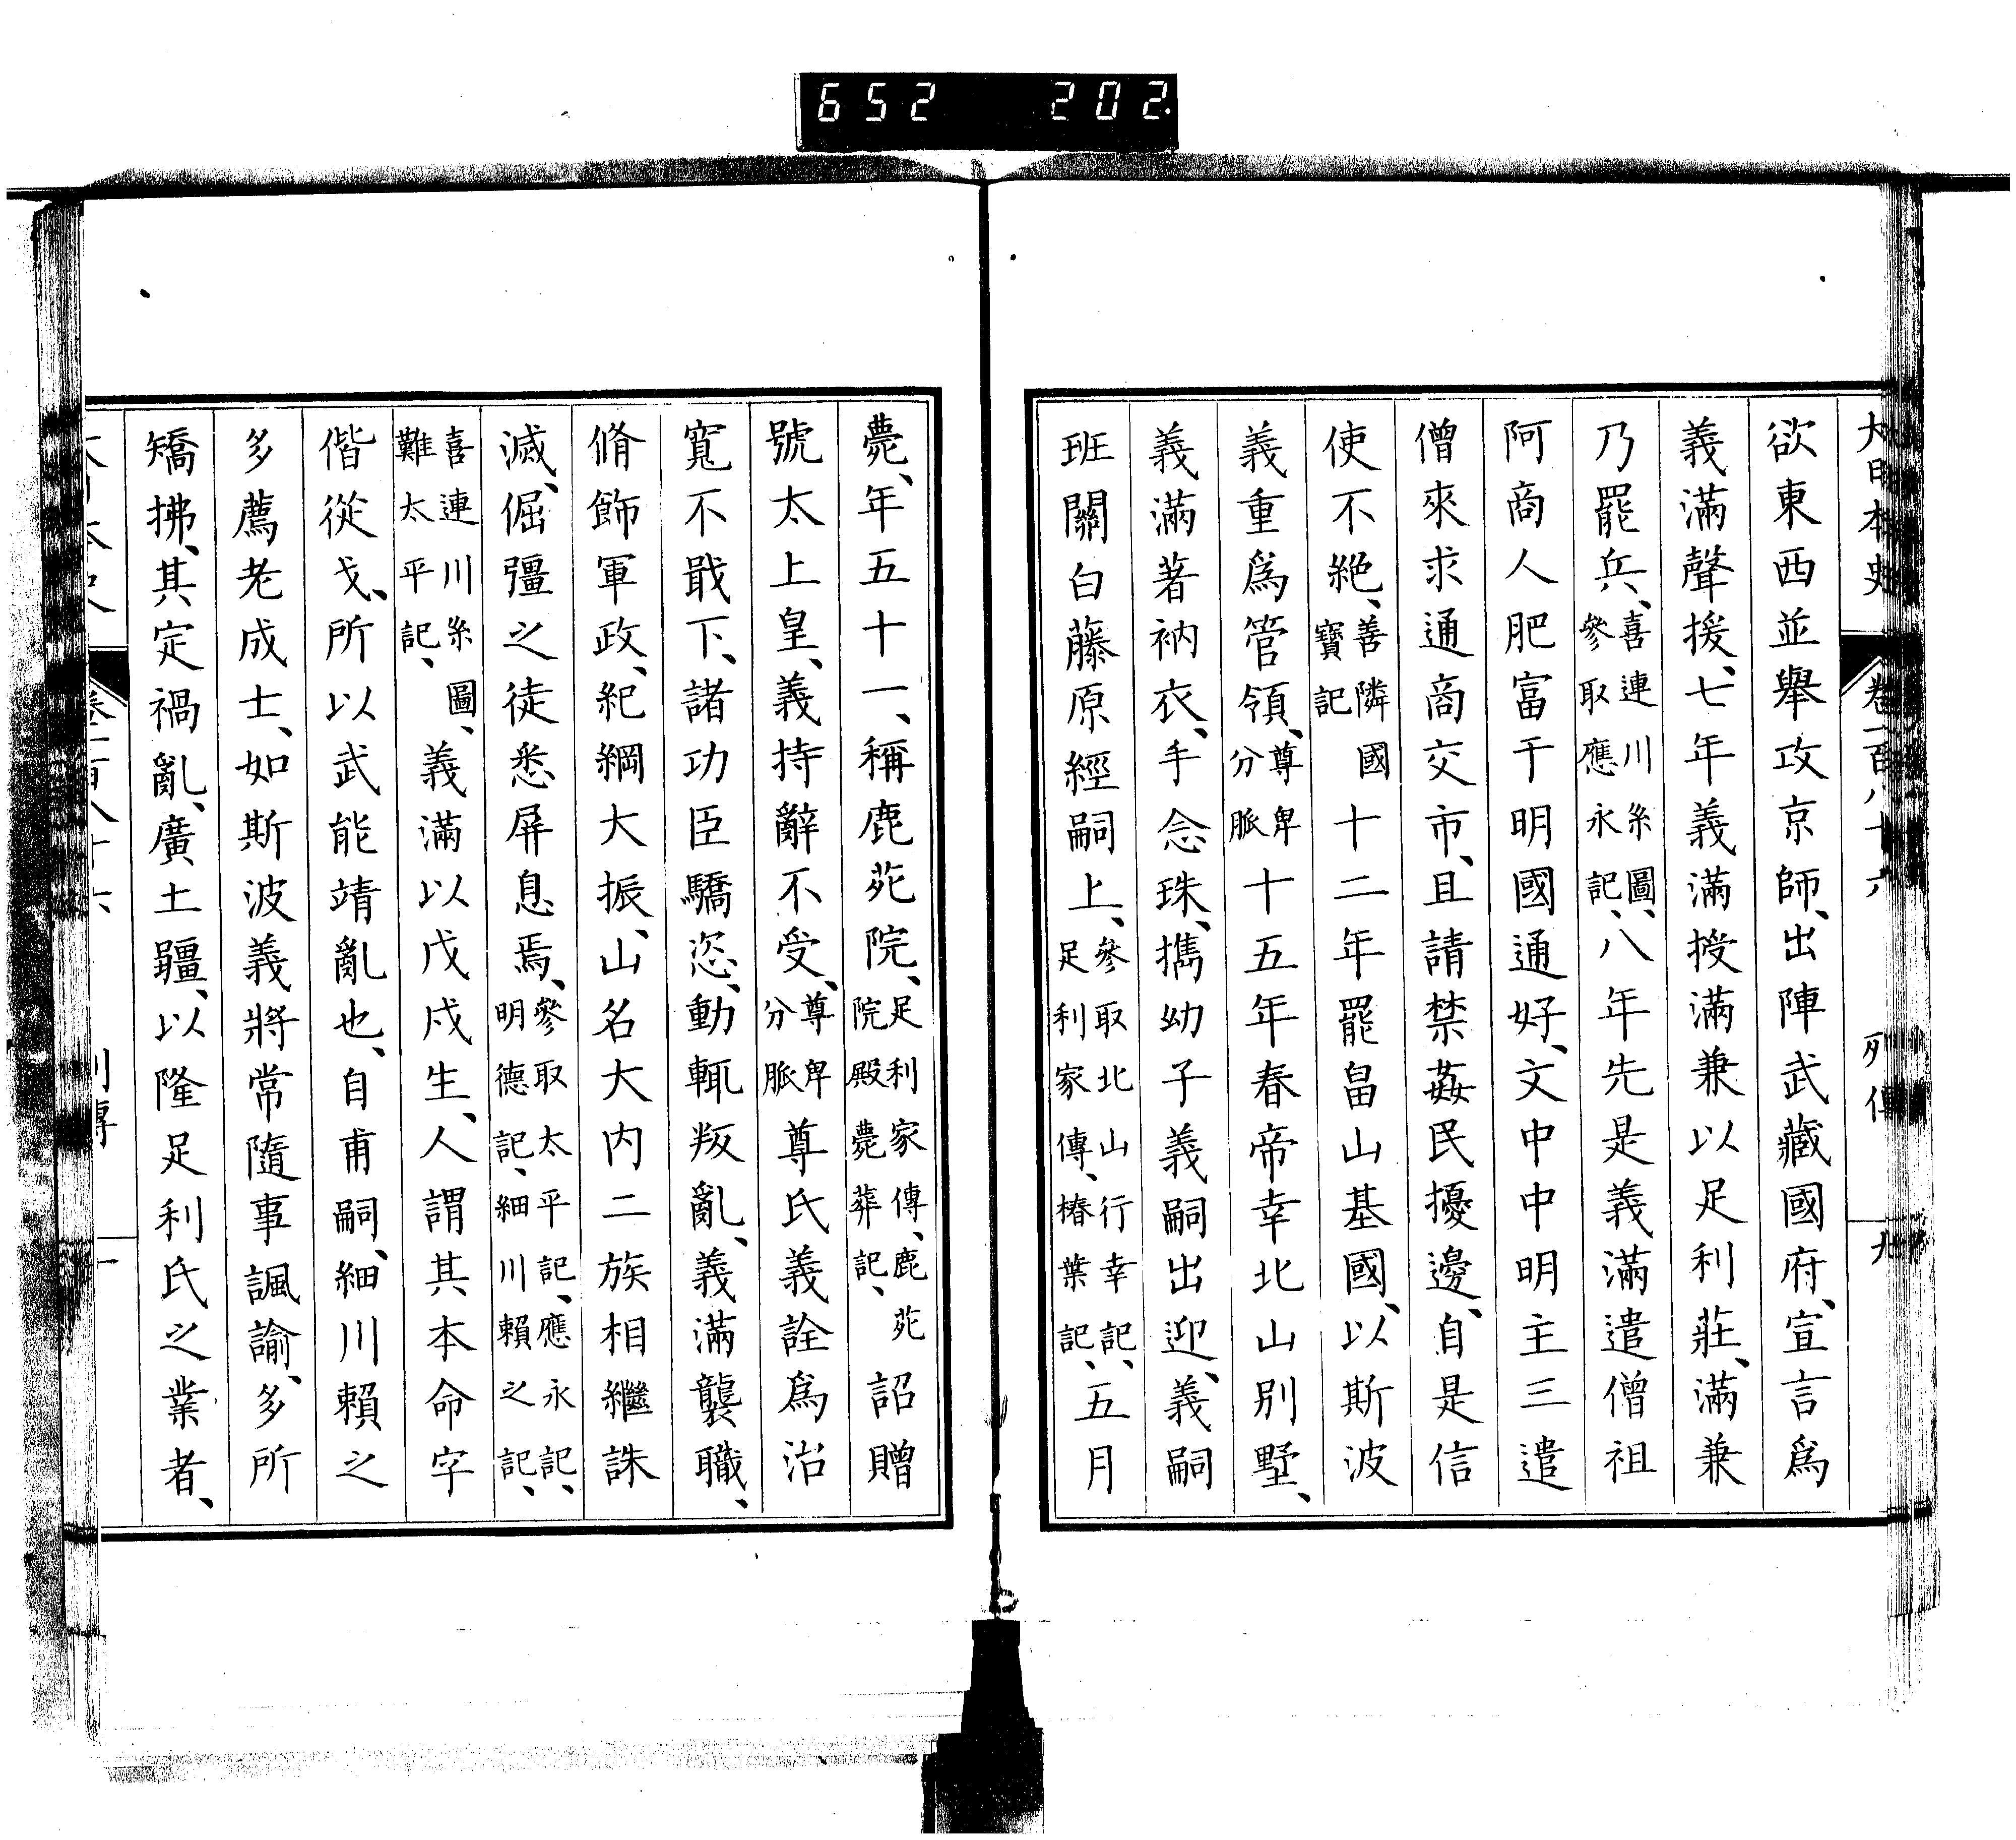 652 202.
大日本史 卷一百八十六 列傳 九
欲東西並舉攻京師、出陣武藏國府、宣言爲
義滿聲援、七年義滿授滿兼以足利莊、滿兼
乃罷兵、喜連川系圖、參取應永記、八年先是義滿遣僧祖
阿商人肥富于明國通好、文中中明主三遣
僧來求通商交市、且請禁姦民擾邊、自是信
使不絕、善隣國寶記十二年罷畠山基國、以斯波
義重爲管領、尊卑分脈十五年春帝幸北山別墅、
義滿著衲衣、手念珠、攜幼子義嗣出迎、義嗣
班關白藤原經嗣上、參取北山行幸記、足利家傳、椿葉記、五月
薨、年五十一、稱鹿苑院、足利家傳、鹿苑院殿薨葬記、詔贈
號太上皇、義持辭不受、尊卑分脈尊氏義詮爲治
寬不戢下、諸功臣驕恣、動輒叛亂、義滿襲職、
脩飾軍政、紀綱大振、山名大内二族相繼誅
滅、倔彊之徒悉屏息焉、參取太平記、應永記、明德記、細川賴之記、
喜連川系圖、難太平記、義滿以戊戌生、人謂其本命字
偕從戈、所以武能靖亂也、自甫嗣、細川賴之
多薦老成士、如斯波義將常隨事諷諭、多所
矯拂、其定禍亂、廣土疆、以隆足利氏之業者、